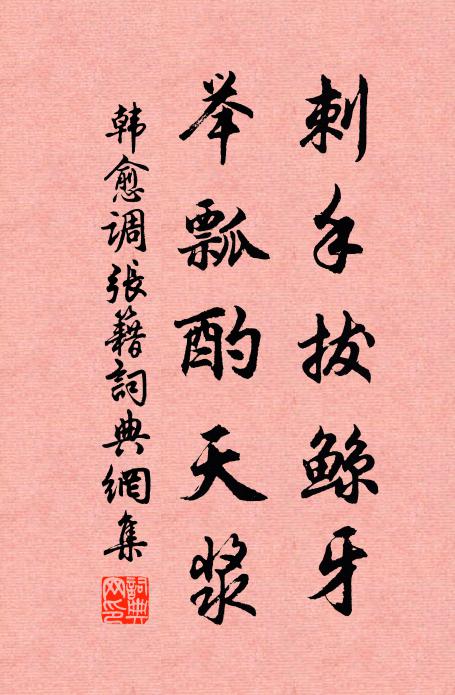 刺手拔鲸牙
举瓢酌天浆
韩愈调張籍詞典網集
詞典网印